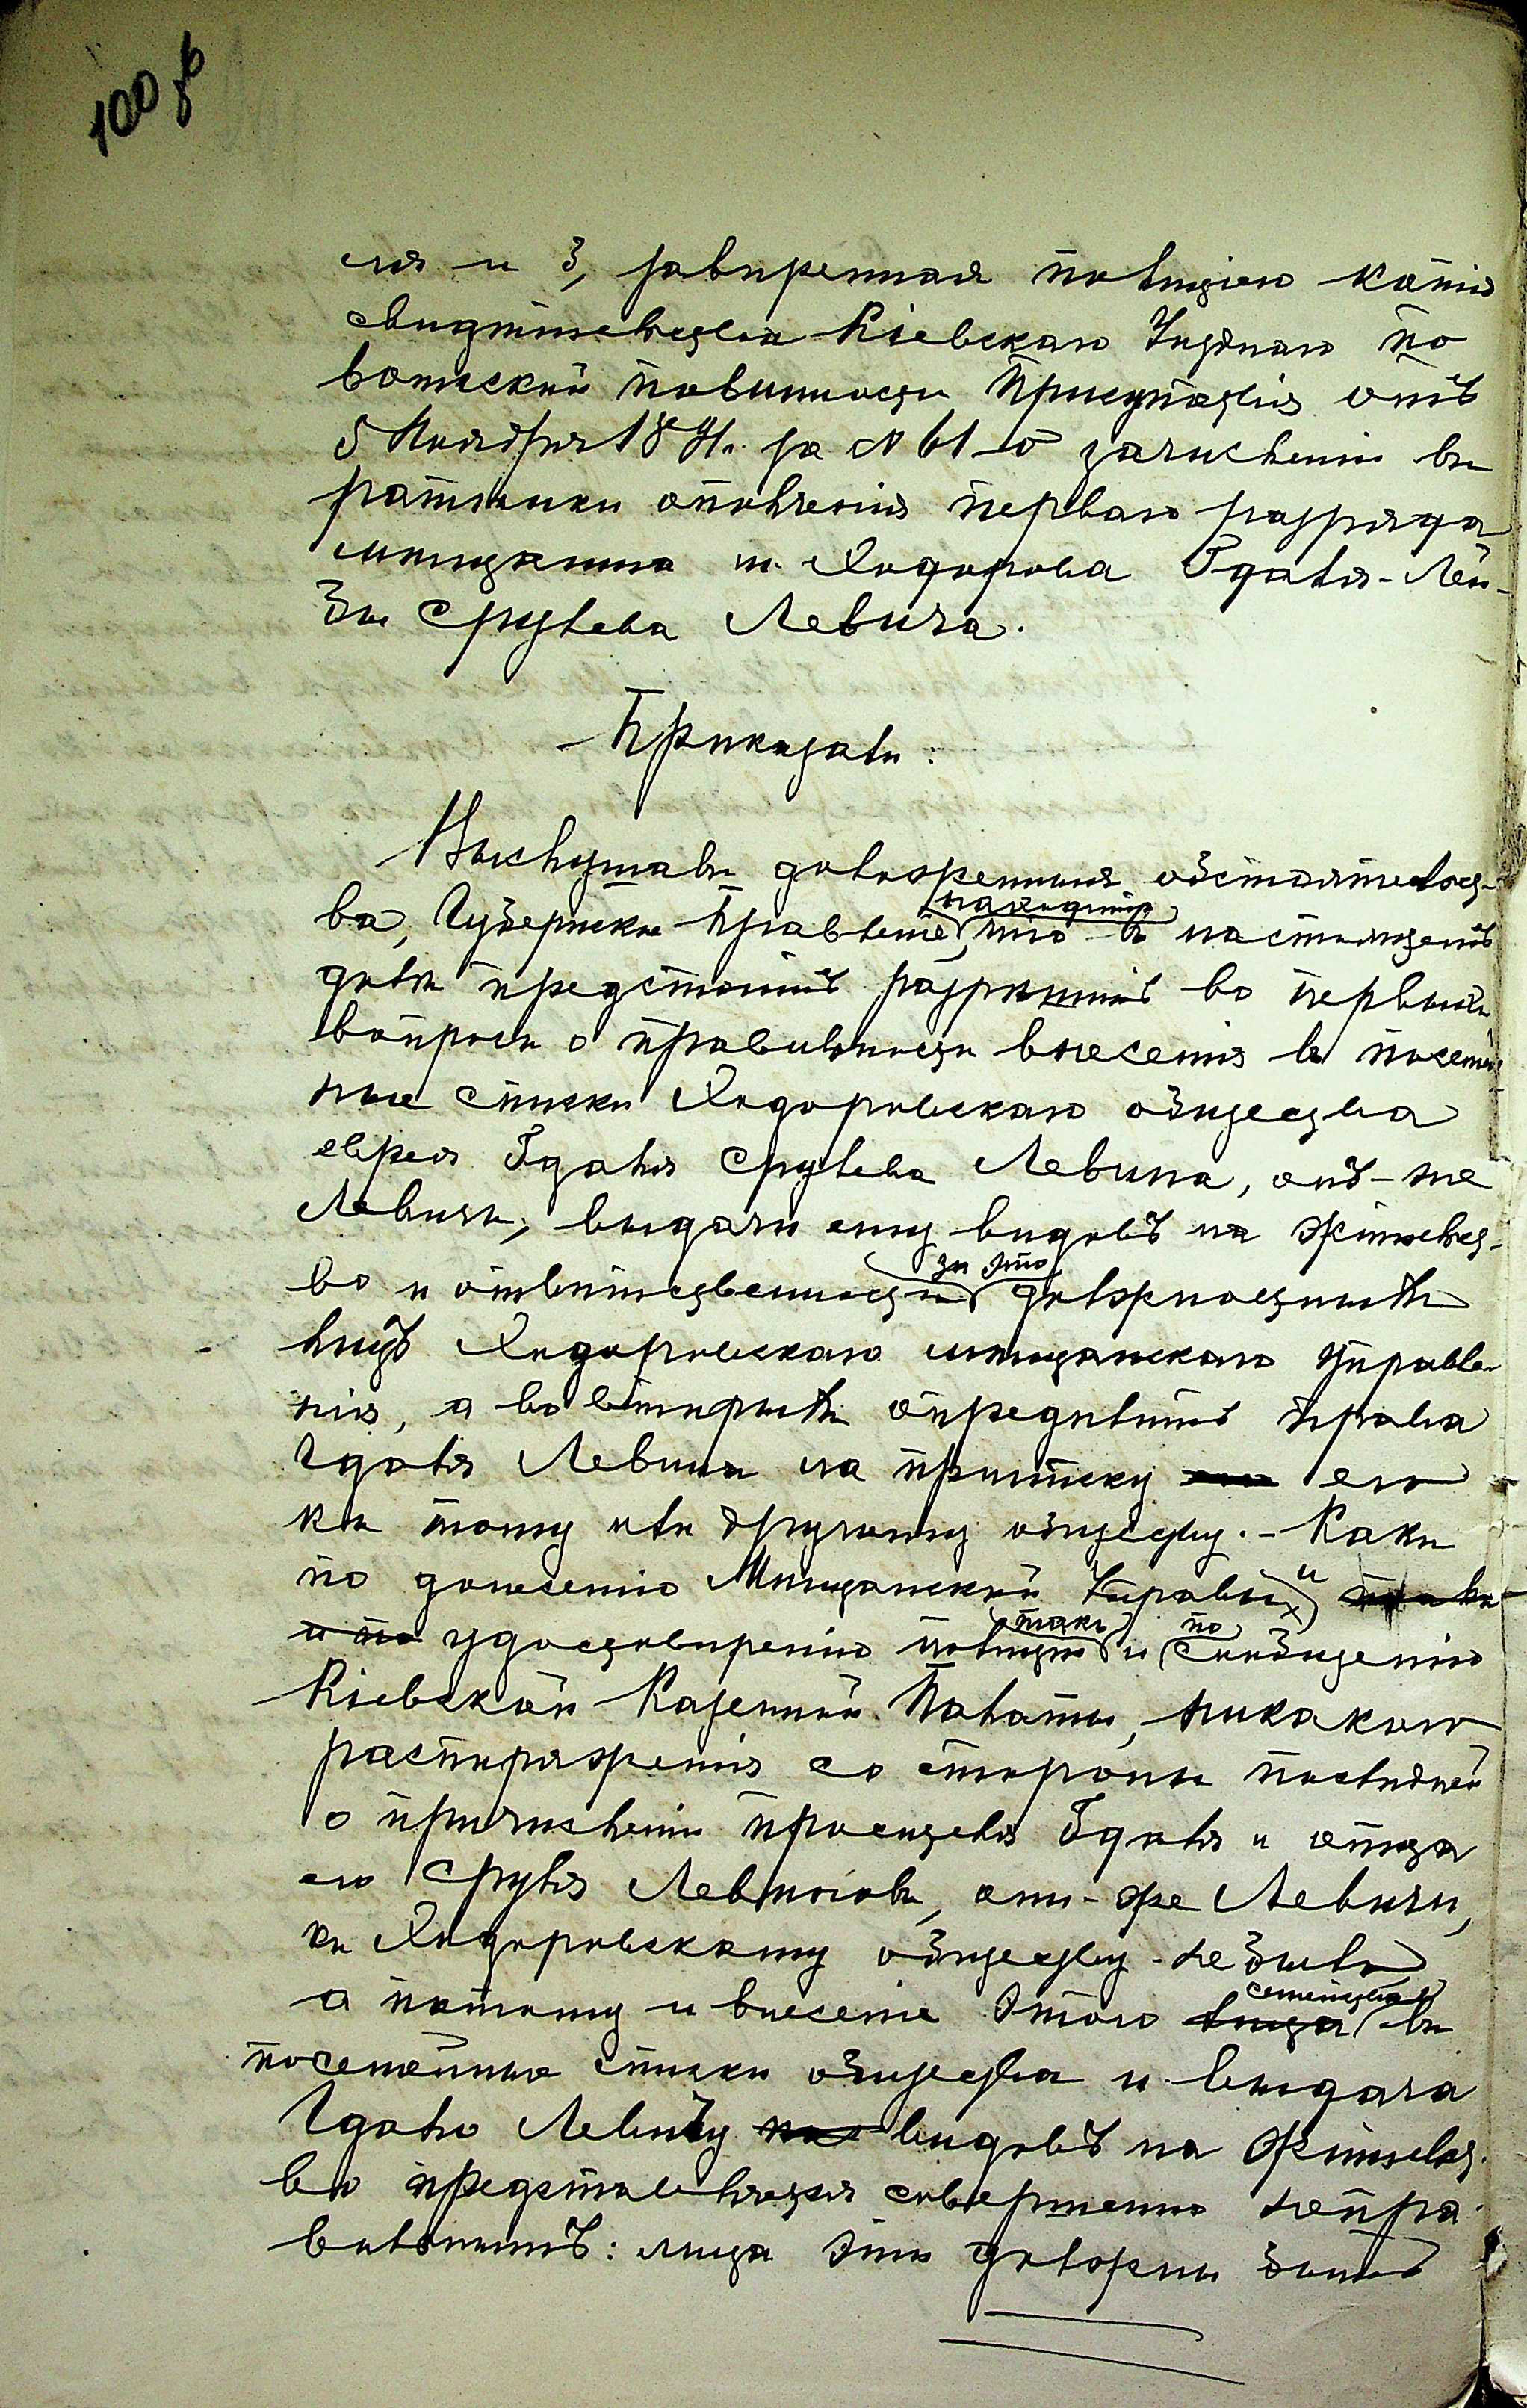 100 об
ля и 3, завѣренная полиціею копія
свидѣтельства Кіевскаго Уѣзднаго по
воинской повинности Присутствія отъ
5 Ноября 18 г. за № 61 о зачисленіи въ
ратники ополченія перваго разряда
мѣщанина м. Ходорова Гдаля-Лей-
бы Срулева Левича.
Приказали:
Выслушавъ доложенныя обстоятельст-
ва, Губернское Правленіе находитъ, что въ настоящемъ
дѣлѣ предстоитъ разрѣшить во первыхъ
вопросъ о правильности внесенія въ посемей-
ные списки Ходоровскаго общества
еврея Гдаля Срулева Левина, онъ-же
Левичъ, выдачи ему видовъ на жительст-
во и отвѣтственности за это должностныхъ
лицъ Ходоровскаго мѣщанскаго Управле-
нія, а во вторыхъ опредѣлить права
Гдаля Левина на приписку его
къ тому или другому обществу. - Какъ
по донесенію Мѣщанской Управы и
и по удостовѣренію полиціи такъ и по сообщенію
Кіевской Казенной Палаты, никакого
распоряженія со стороны послѣдней
о причисленіи просителя Гдаля и отца
его Сруля Левиновъ, они-же Левичи,
къ Ходоровскому обществу не было
а потому и внесеніе этого семейства въ
посемейные списки общества и выдача
Гдалю Левичу видовъ на жительст-
во представляется совершенно непра-
вильнымъ: лица эти должны быть